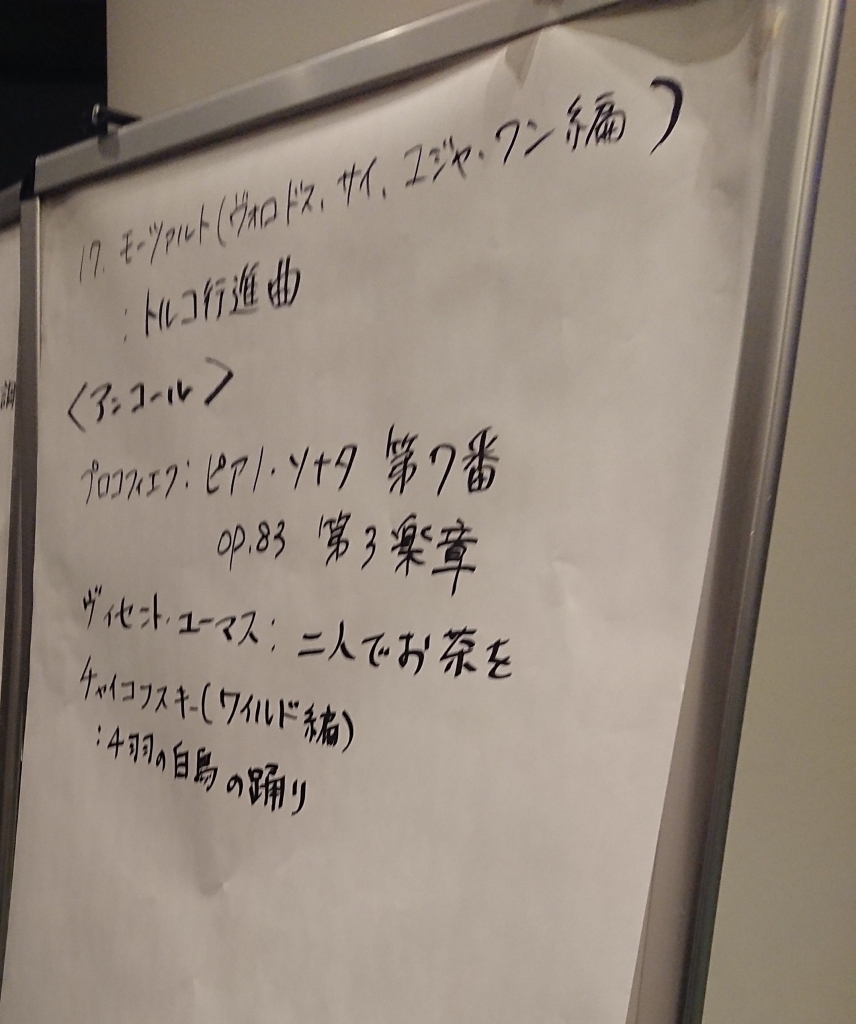 17. モーツァルト(ヴォロドス、サイ、ユジャ・ワン編)
:トルコ行進曲
〈アンコール〉
プロコフィエフ:ピアノ・ソナタ 第7番
op.83 第3楽章
ヴィセント・ユーマス:二人でお茶を
チャイコフスキー(ワイルド編)
:4羽の白鳥の踊り